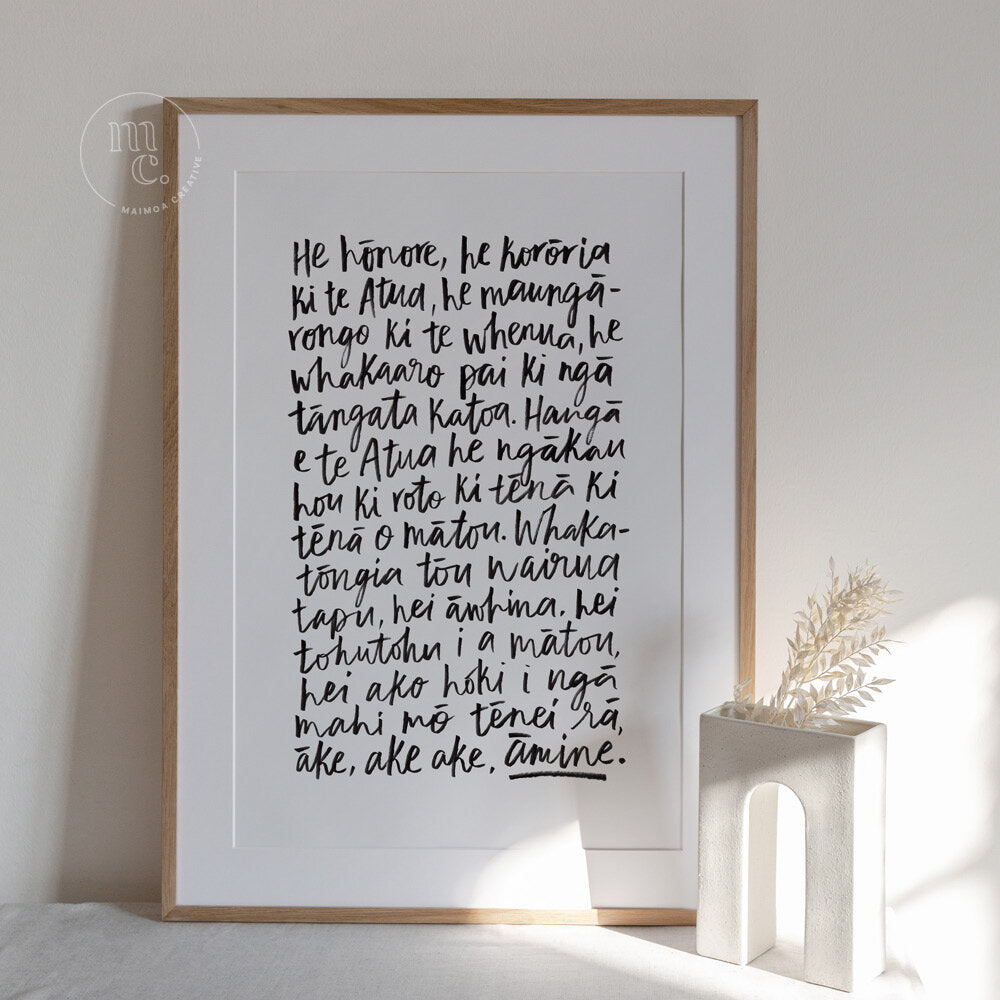 mc.
MAIMOA CREATIVE
He hōnore, he korōria
ki te Atua, he maungā-
rongo ki te whenua, he
whakaaro pai ki ngā
tāngata katoa. Hangā
e te Atua he ngākau
hou ki roto ki tēnā ki
tēnā o mātou. Whaka-
tōngia tōu wairua
tapu, hei āwhina, hei
tohutohu i a mātou,
hei ako hóki i ngā
mahi mō tēnei rā,
āke, ake ake, āmine.